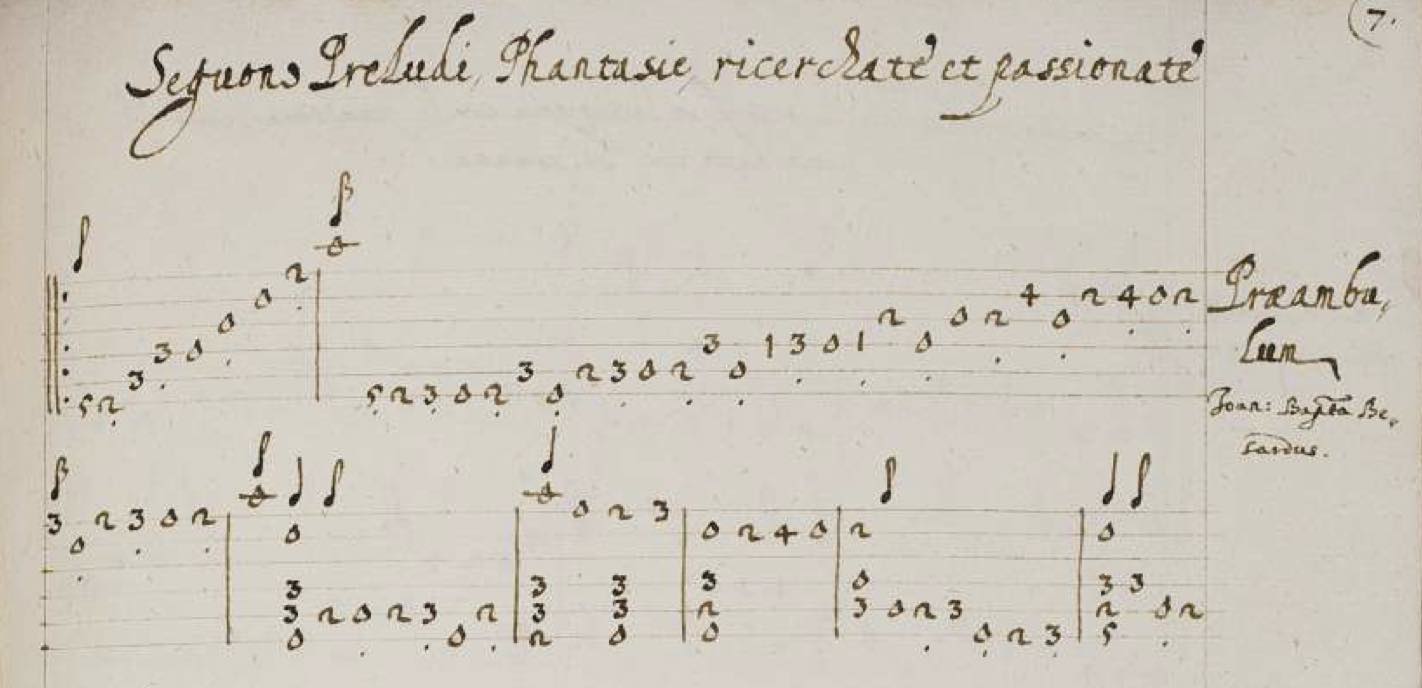 7.
Seguono Preludi, Phantasie, ricerchate et passionate
Præambu,
lum
Joan: Bapta Be,
sardus.